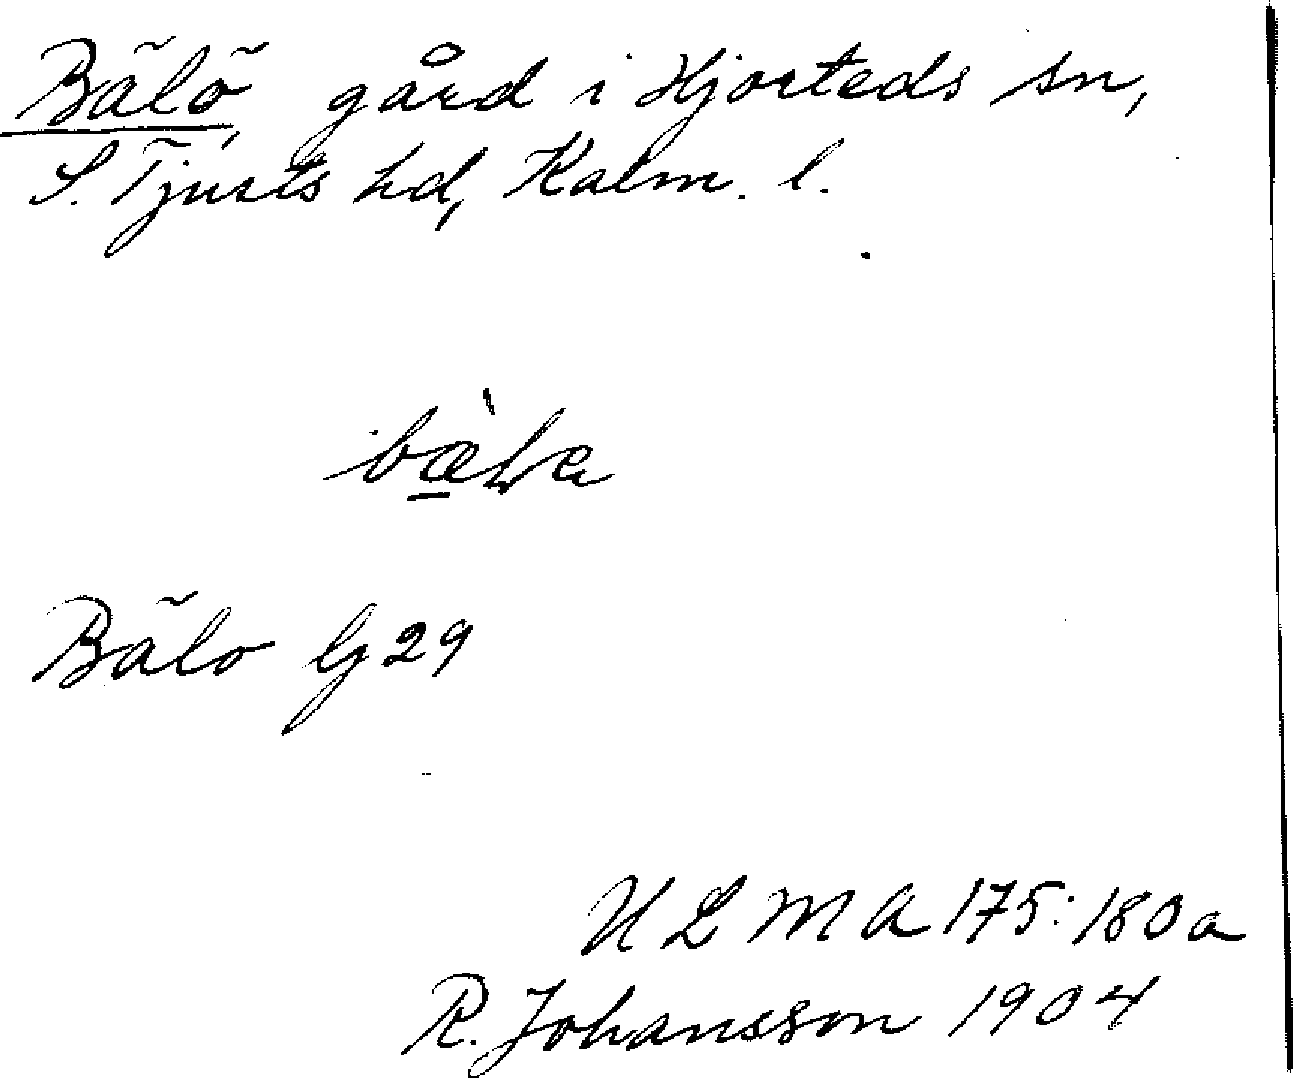 Bälö, gård i Hjorteds sn,
S. Tjusts hd, Kalm. l.
Bälo G 29
ULMA 175:180a
R. Johansson 1904